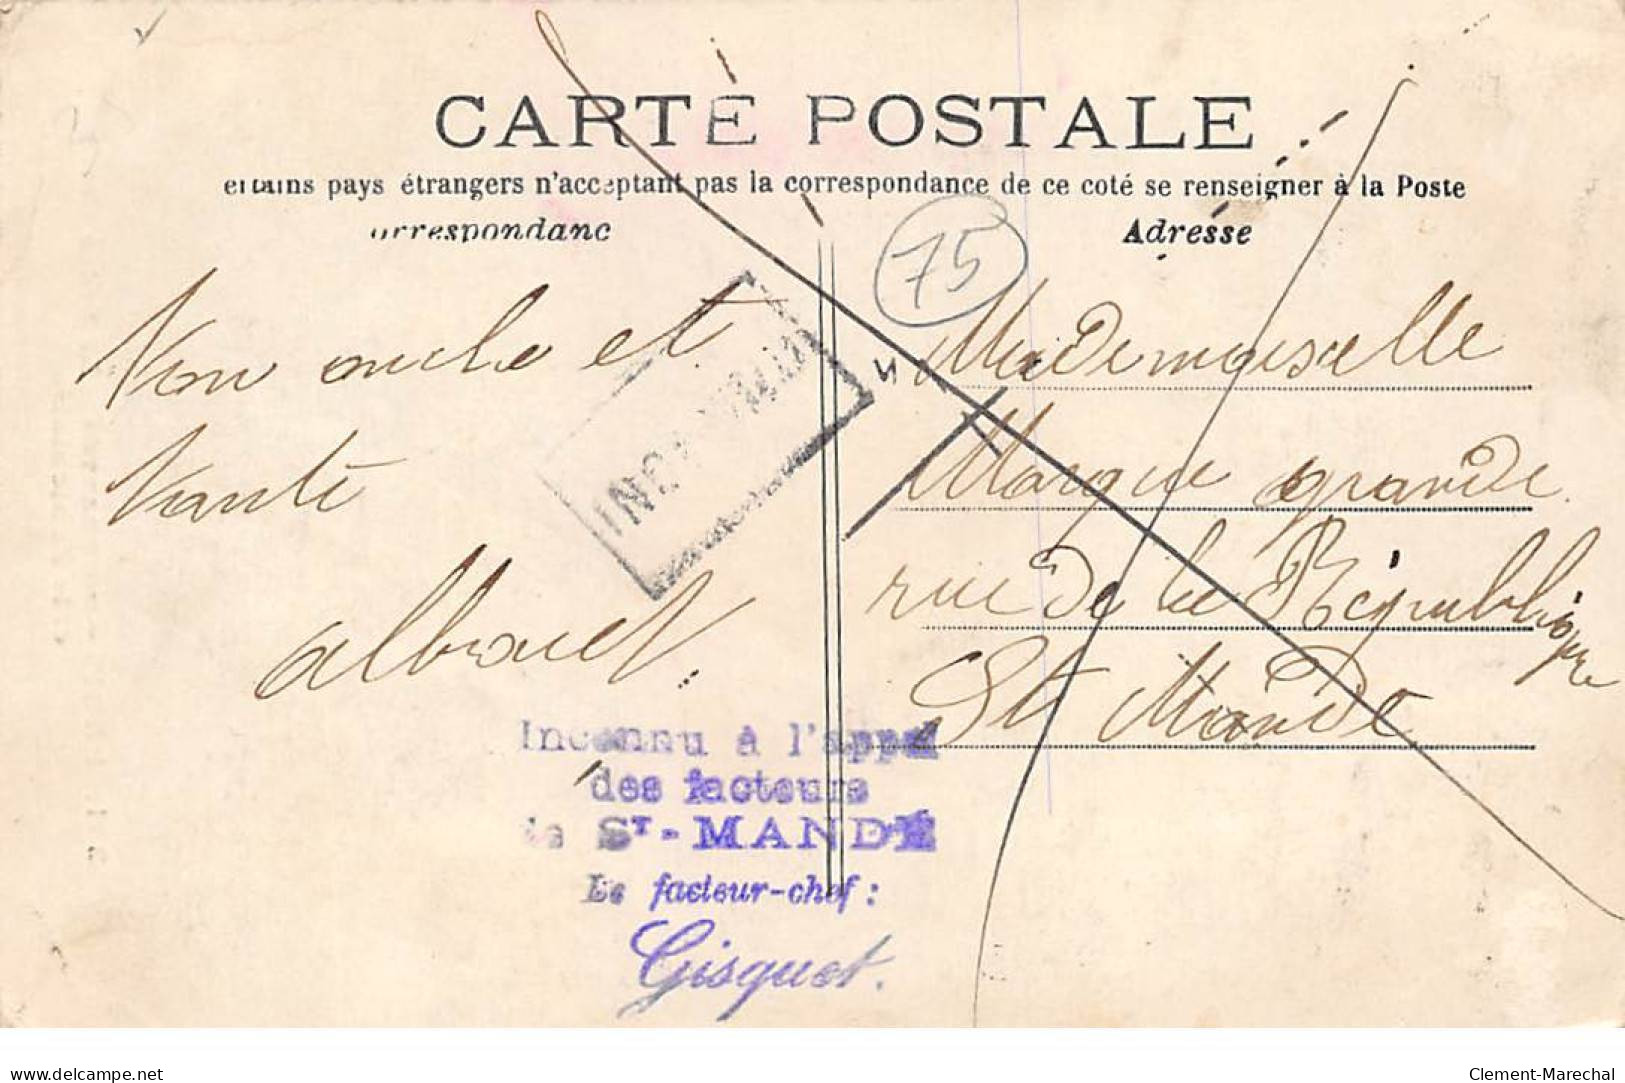 CARTE POSTALE
ertains pays étrangers n'acceptant pas la correspondance de ce coté se renseigner à la Poste
orrespondanc
Adresse
75
Von oncle et
Vante
alboueT
Mademoiselle
Marque grande
rue de la Républhique
St Mande
Inconnu à l'appel
des facteurs
de ST-MANDÉ
Le facteur-chef :
Gisquet.
www.delcampe.net
Clement-Marechal